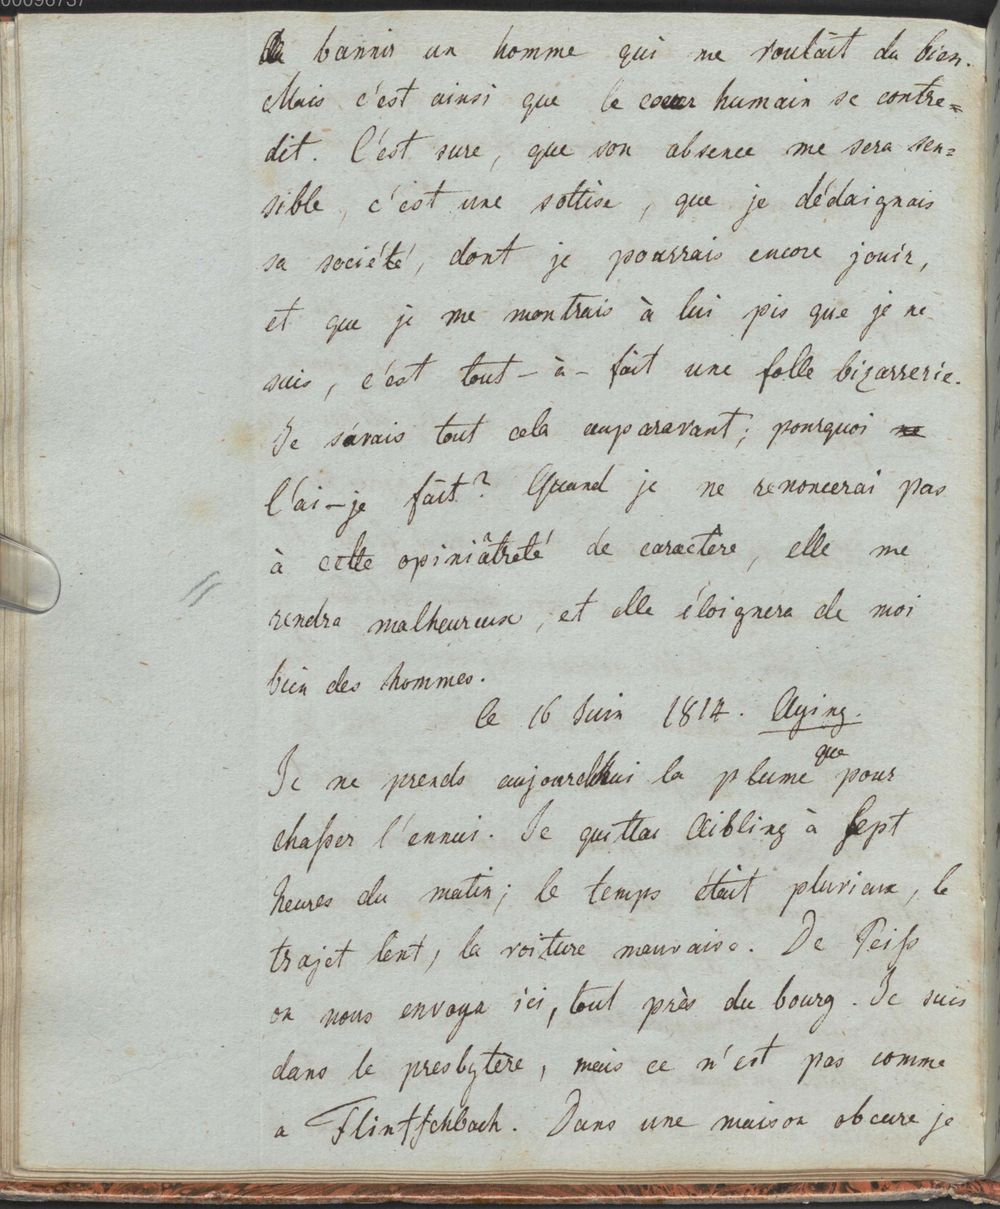 00096737
de bannir un homme qui me voulait du bien.
Mais c'est ainsi que le coeur humain se contre=
dit. C'est sure, que son absence me sera sen=
sible, c'est une sottise, que je dédaignais
sa société, dont je pourrais encore jouir,
et que je me montrais à lui pis que je ne
suis, c'est tout-à-fait une folle bizarrerie.
Je savais tout cela auparavant; pourquoi ne
l'ai-je fait? Quand je ne renoncerai pas
à cette opiniâtreté de caractère, elle me
rendra malheureux, et elle éloignera de moi
bien des hommes.
le 16 Juin 1814. Aying.
Je ne prends aujourdhui la plume que pour
chaſser l'ennui. Je quittai Aibling à Sept
heures du matin; le temps était pluvieux, le
trajet lent, la voiture mauvaise. De Peiſs
on nous envoya ici, tout près du bourg. Je suis
dans le presbytère, mais ce n'est pas comme
a Flintſchbach. Dans une maison obcure je